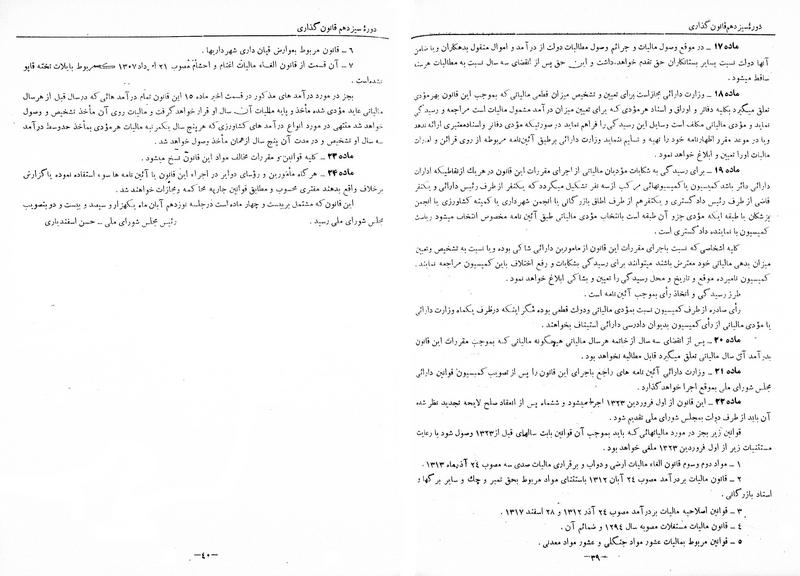 دورهٔ سیزدهم قانون گذاری
ماده ۱۷ ـ در موقع وصول مالیات و جرائم وصول مطالبات دولت از درآمد و اموال منقول بدهکاران ویا ضامن
آنها دولت نسبت بسایر بستانکاران حق تقدم خواهد داشت و این حق پس از انقضای سه سال نسبت به مطالبات هرسنه
ساقط میشود .
ماده ۱۸ ـ وزارت دارائی مجاز است برای تعیین و تشخیص میزان قطعی مالیاتی که بموجب این قانون بهر مؤدی
تعلق میگیرد بکلیه دفاتر و اوراق و اسناد هر مؤدی که برای تعیین میزان درآمد مشمول مالیات است مراجعه و رسیدگی
نماید و مؤدی مالیاتی مکلف است وسایل این رسیدگی را فراهم نماید در صورتیکه مؤدی دفاتر و اسناد معتبری ارائه ندهد
ویا در موعد مقرر اظهارنامه خود را تهیه و تسلیم ننماید وزارت دارائی برطبق آئین‌نامه مربوطه از روی قرائن و امارات
مالیات اورا تعیین و ابلاغ خواهد نمود .
ماده ۱۹ ـ برای رسیدگی به شکایات مؤدیان مالیاتی از اجرای مقررات این قانون در هریك از نقاطیکه اداره
دارائی دائر باشد کمیسیون یا کمیسیونهائی مرکب از سه نفر تشکیل میگردد که یکنفر از طرف رئیس دارائی و یکنفر
قاضی از طرف رئیس دادگستری و یکنفر هم از طرف اطاق بازرگانی یا انجمن شهرداری یا کمیته کشاورزی یا انجمن
پزشکان یا طبقه اینکه مؤدی جزو آن طبقه است بانتخاب مؤدی مالیاتی طبق آئین نامه مخصوص انتخاب میشود ریاست
کمیسیون با نماینده دادگستری است .
کلیه اشخاصی که نسبت باجرای مقررات این قانون از مامورین دارائی شاکی بوده ویا نسبت به تشخیص وتعیین
میزان بدهی مالیاتی خود معترض باشند میتوانند برای رسیدگی بشکایات و رفع اختلاف باین کمیسیون مراجعه نمایند .
کمیسیون نامبرده موقع و تاریخ و محل رسیدگی را تعیین و بشاکی ابلاغ خواهد نمود .
طرز رسیدگی و اتخاذ رأی بموجب آئین نامه است .
رأی صادره از طرف کمیسیون نسبت بمؤدی مالیاتی ودولت قطعی بوده مگر اینکه در ظرف یکماه وزارت دارائی
یا مؤدی مالیاتی از رأی کمیسیون بدیوان دادرسی دارائی استیناف بخواهند .
ماده ۲۰ ـ پس از انقضای سه سال از خاتمه هر سال مالیاتی هیچگونه مالیاتی که بموجب مقررات این قانون
بدرآمد آن سال مالیاتی تعلق میگیرد قابل مطالبه نخواهد بود .
ماده ۲۱ ـ وزارت دارائی آئین نامه های راجع باجرای این قانون را پس از تصویب کمیسیون قوانین دارائی
مجلس شورای ملی بموقع اجرا خواهد گذارد .
ماده ۲۲ ـ این قانون از اول فروردین ۱۳۲۳ اجرا میشود و ششماه پس از انعقاد صلح لایحه تجدید نظر شده
آن باید از طرف دولت بمجلس شورای ملی تقدیم شود .
قوانین زیر بجز در مورد مالیاتهائی که باید بموجب آن قوانین بابت سالهای قبل از ۱۳۲۳ وصول شود با رعایت
مستثنیات زیر از اول فروردین ۱۳۲۳ ملغی خواهد بود .
۱ ـ مواد دوم وسوم قانون الغاء مالیات ارضی و دواب و برقراری مالیات صدی سه مصوب ۲۴ آذرماه ۱۳۱۳ .
۲ ـ قانون مالیات بردرآمد مصوب ۲۴ آبان ۱۳۱۲ باستثنای مواد مربوط بحق تمبر و چك و سایر برگها و
اسناد بازرگانی .
۳ ـ قوانین اصلاحیه مالیات بردرآمد مصوب ۲۴ آذر ۱۳۱۲ و ۲۸ اسفند ۱۳۱۷ .
۴ ـ قانون مالیات مستغلات مصوبه سال ۱۲۹۴ و ضمائم آن .
۵ ـ قوانین مربوط بمالیات عشور مواد جنگلی و عشور مواد معدنی .
ـ ۳۹ ـ
دورهٔ سیزدهم قانون گذاری
۶ ـ قانون مربوط بعوارض قپان داری شهرداریها .
۷ ـ آن قسمت از قانون الغاء مالیات اغنام و احشام مصوب ۲۱ مرداد ۱۳۰۷ که مربوط بایلات تخته قاپو
نشده است .
بجز در مورد درآمد های مذکور در قسمت اخیر ماده ۱۵ این قانون تمام درآمد هائی که در سال قبل از هر سال
مالیاتی عاید مؤدی شده مأخذ و پایه مطلبات آن سال او قرار خواهد گرفت و مالیات روی آن مأخذ تشخیص و وصول
خواهد شد منتهی در مورد انواع درآمد های کشاورزی که هر پنج سال یکمرتبه مالیات هر مؤدی بمأخذ حد وسط درآمد
سه سال او تشخیص و در مدت آن پنج سال از همان مأخذ وصول خواهد شد .
ماده ۲۳ ـ کلیه قوانین و مقررات مخالف مواد این قانون نسخ میشود .
ماده ۲۴ ـ هر گاه مأمورین و رؤسای دوایر در اجراء این قانون یا آئین نامه ها سوء استفاده نموده یا گزارش
برخلاف واقع بدهند مفتری محسوب و مطابق قوانین جاریه محاکمه و مجازات خواهند شد .
این قانون که مشتمل بر بیست و چهار ماده است در جلسه نوزدهم آبان ماه یکهزار و سیصد و بیست و دو بتصویب
مجلس شورای ملی رسید .
رئیس مجلس شورای ملی ـ حسن اسفندیاری
ـ ۴۰ ـ